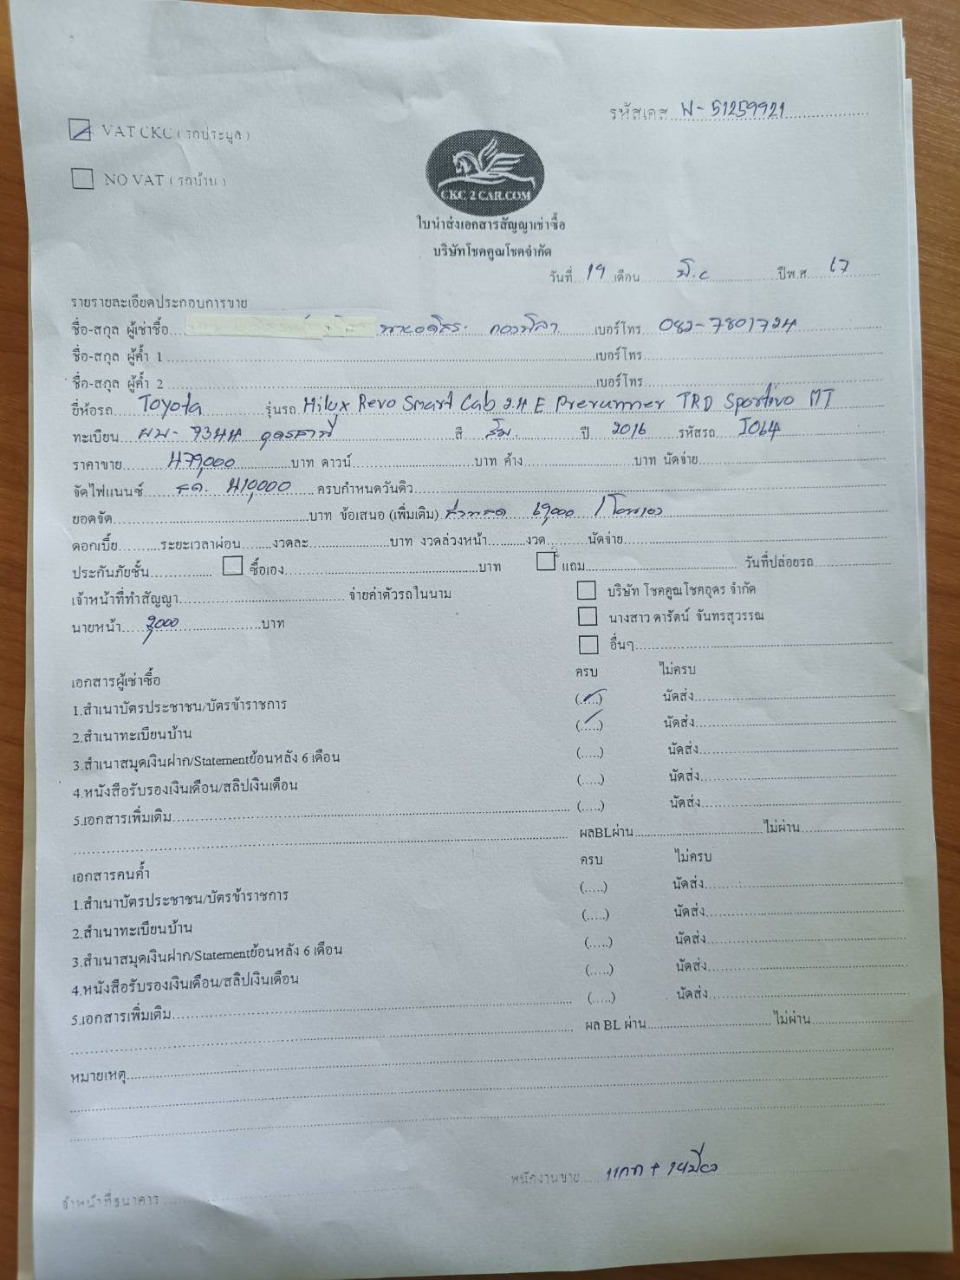 รหัสเคส N-51259921
VAT CKC (รถประมูล)
NO VAT (รถบ้าน)
CKC 2 CAR.COM
ใบนำส่งเอกสารสัญญาเช่าซื้อ
บริษัทโชคคูณโชคจำกัด
วันที่ 19 เดือน มิ.ย ปีพ.ศ. 67
รายรายละเอียดประกอบการขาย
ชื่อ-สกุล ผู้เช่าซื้อ เบอร์โทร 082-7801724
ชื่อ-สกุล ผู้ค้ำ 1 เบอร์โทร
ชื่อ-สกุล ผู้ค้ำ 2 เบอร์โทร
ยี่ห้อรถ Toyota รุ่นรถ Hilux Revo Smart Cab 2.4 E Prerunner TRD Sportivo MT
ทะเบียน ผม-9344 อุดรธานี สี ส้ม ปี 2016 รหัสรถ J064
ราคาขาย 479,000 บาท ดาวน์ บาท ค้าง บาท นัดจ่าย
จัดไฟแนนซ์ 410,000 ครบกำหนดวันคิว
ยอดจัด บาท ข้อเสนอ (เพิ่มเติม) ส่วนลด 69,000
ดอกเบี้ย ระยะเวลาผ่อน งวดละ บาท งวดล่วงหน้า งวด นัดจ่าย
ประกันภัยชั้น ซื้อเอง บาท แถม วันที่ปล่อยรถ
เจ้าหน้าที่ทำสัญญา จ่ายค่าตัวรถในนาม บริษัท โชคคูณโชคอุดร จำกัด
นายหน้า บาท นางสาว ดารัตน์ จันทรสุวรรณ
อื่นๆ
เอกสารผู้เช่าซื้อ ครบ ไม่ครบ
1.สำเนาบัตรประชาชน/บัตรข้าราชการ (.....) นัดส่ง
2.สำเนาทะเบียนบ้าน (.....) นัดส่ง
3.สำเนาสมุดเงินฝาก/Statementย้อนหลัง 6 เดือน (.....) นัดส่ง
4.หนังสือรับรองเงินเดือน/สลิปเงินเดือน (.....) นัดส่ง
5.เอกสารเพิ่มเติม (.....) นัดส่ง
ผลBLผ่าน ไม่ผ่าน
เอกสารคนค้ำ ครบ ไม่ครบ
1.สำเนาบัตรประชาชน/บัตรข้าราชการ (.....) นัดส่ง
2.สำเนาทะเบียนบ้าน (.....) นัดส่ง
3.สำเนาสมุดเงินฝาก/Statementย้อนหลัง 6 เดือน (.....) นัดส่ง
4.หนังสือรับรองเงินเดือน/สลิปเงินเดือน (.....) นัดส่ง
5.เอกสารเพิ่มเติม (.....) นัดส่ง
ผล BL ผ่าน ไม่ผ่าน
หมายเหตุ
พนักงานขาย
จำหน้าที่ธนาคาร